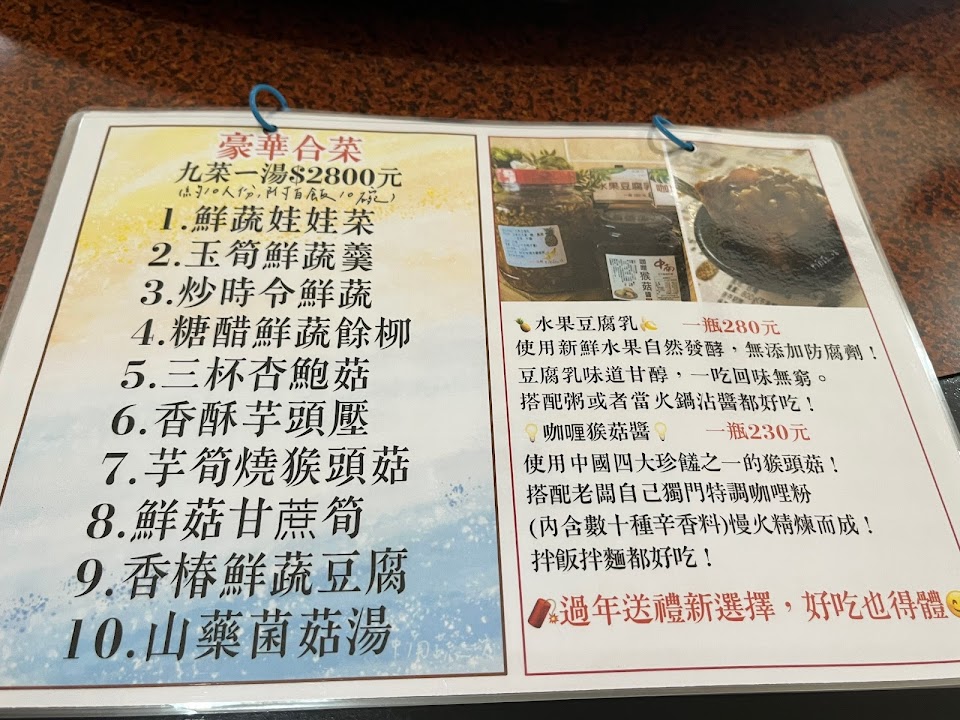 豪華合菜
九菜一湯$2800元
(約10人份,附首飯10碗)
1.鮮蔬娃娃菜
2.玉筍鮮蔬羹
3.炒時令鮮蔬
4.糖醋鮮蔬餘柳
5.三杯杏鮑菇
6.香酥芋頭壓
7.芋筍燒猴頭菇
8.鮮菇甘蔗筍
9.香椿鮮蔬豆腐
10.山藥菌菇湯
水果豆腐乳
咖
猴菇醬
🍍水果豆腐乳🍌 一瓶280元
使用新鮮水果自然發酵,無添加防腐劑!
豆腐乳味道甘醇,一吃回味無窮。
搭配粥或者當火鍋沾醬都好吃!
💡咖喱猴菇醬💡 一瓶230元
使用中國四大珍饈之一的猴頭菇!
搭配老闆自己獨門特調咖哩粉
(內含數十種辛香料)慢火精煉而成!
拌飯拌麵都好吃!
🧨過年送禮新選擇,好吃也得體😋